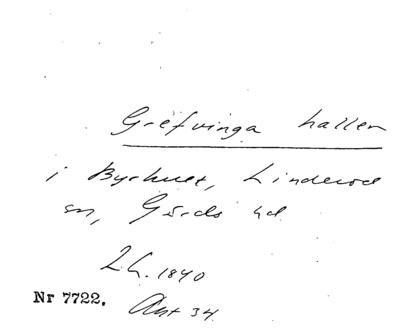 Grefvinga hallen
i Byrhult, Linderöd
sn, Gärds hd
L.G. 1840
Nr 7722. Ant 34